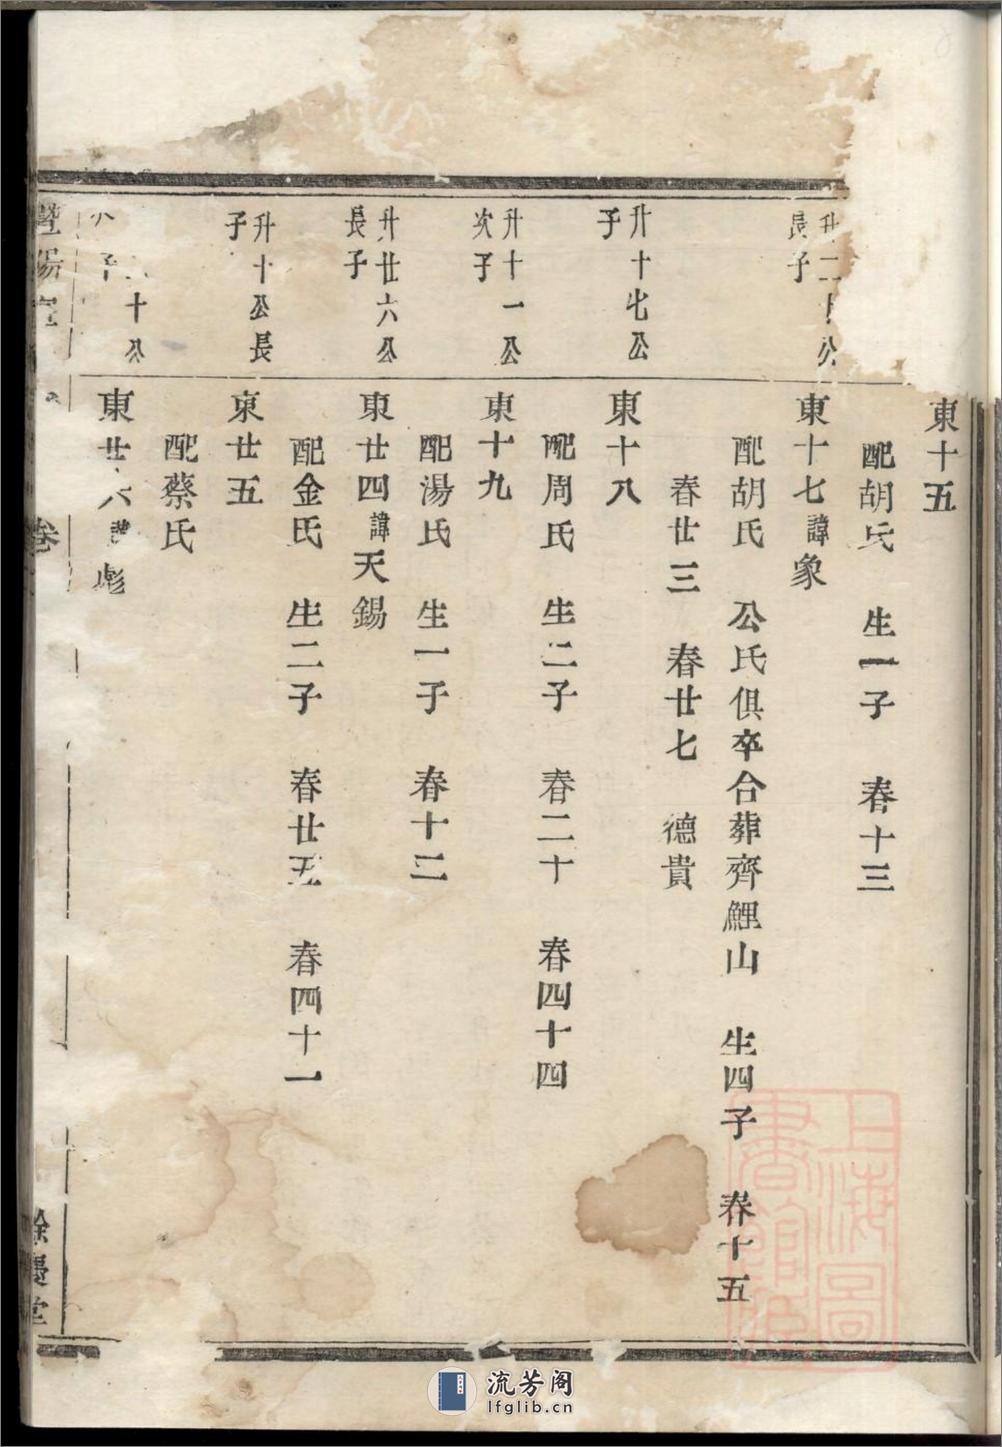 東十五
配胡氏　生一子　春十三
升二十公
長子
東十七諱象
配胡氏　公氏俱卒合葬齊鯉山　生四子　春十五
春廿三　春廿七　德貴
升十七公
子
東十八
配周氏　生二子　春二十　春四十四
升十一公
次子
東十九
配湯氏　生一子　春十二
升廿六公
長子
東廿四諱天錫
配金氏　生二子　春廿五　春四十一
升十公長
子
東廿五
配蔡氏
十公
子
東廿六諱彪
暨陽
卷
餘慶堂
上海圖
書館藏
流芳阁
lfglib.cn